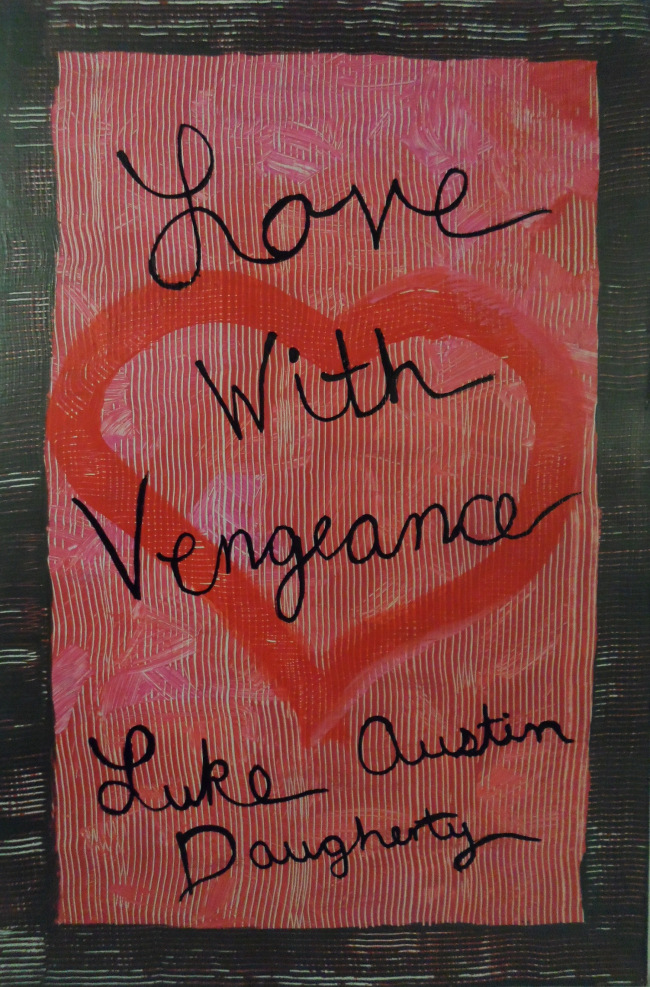 Love
With
Vengeance
Luke Austin
Daugherty